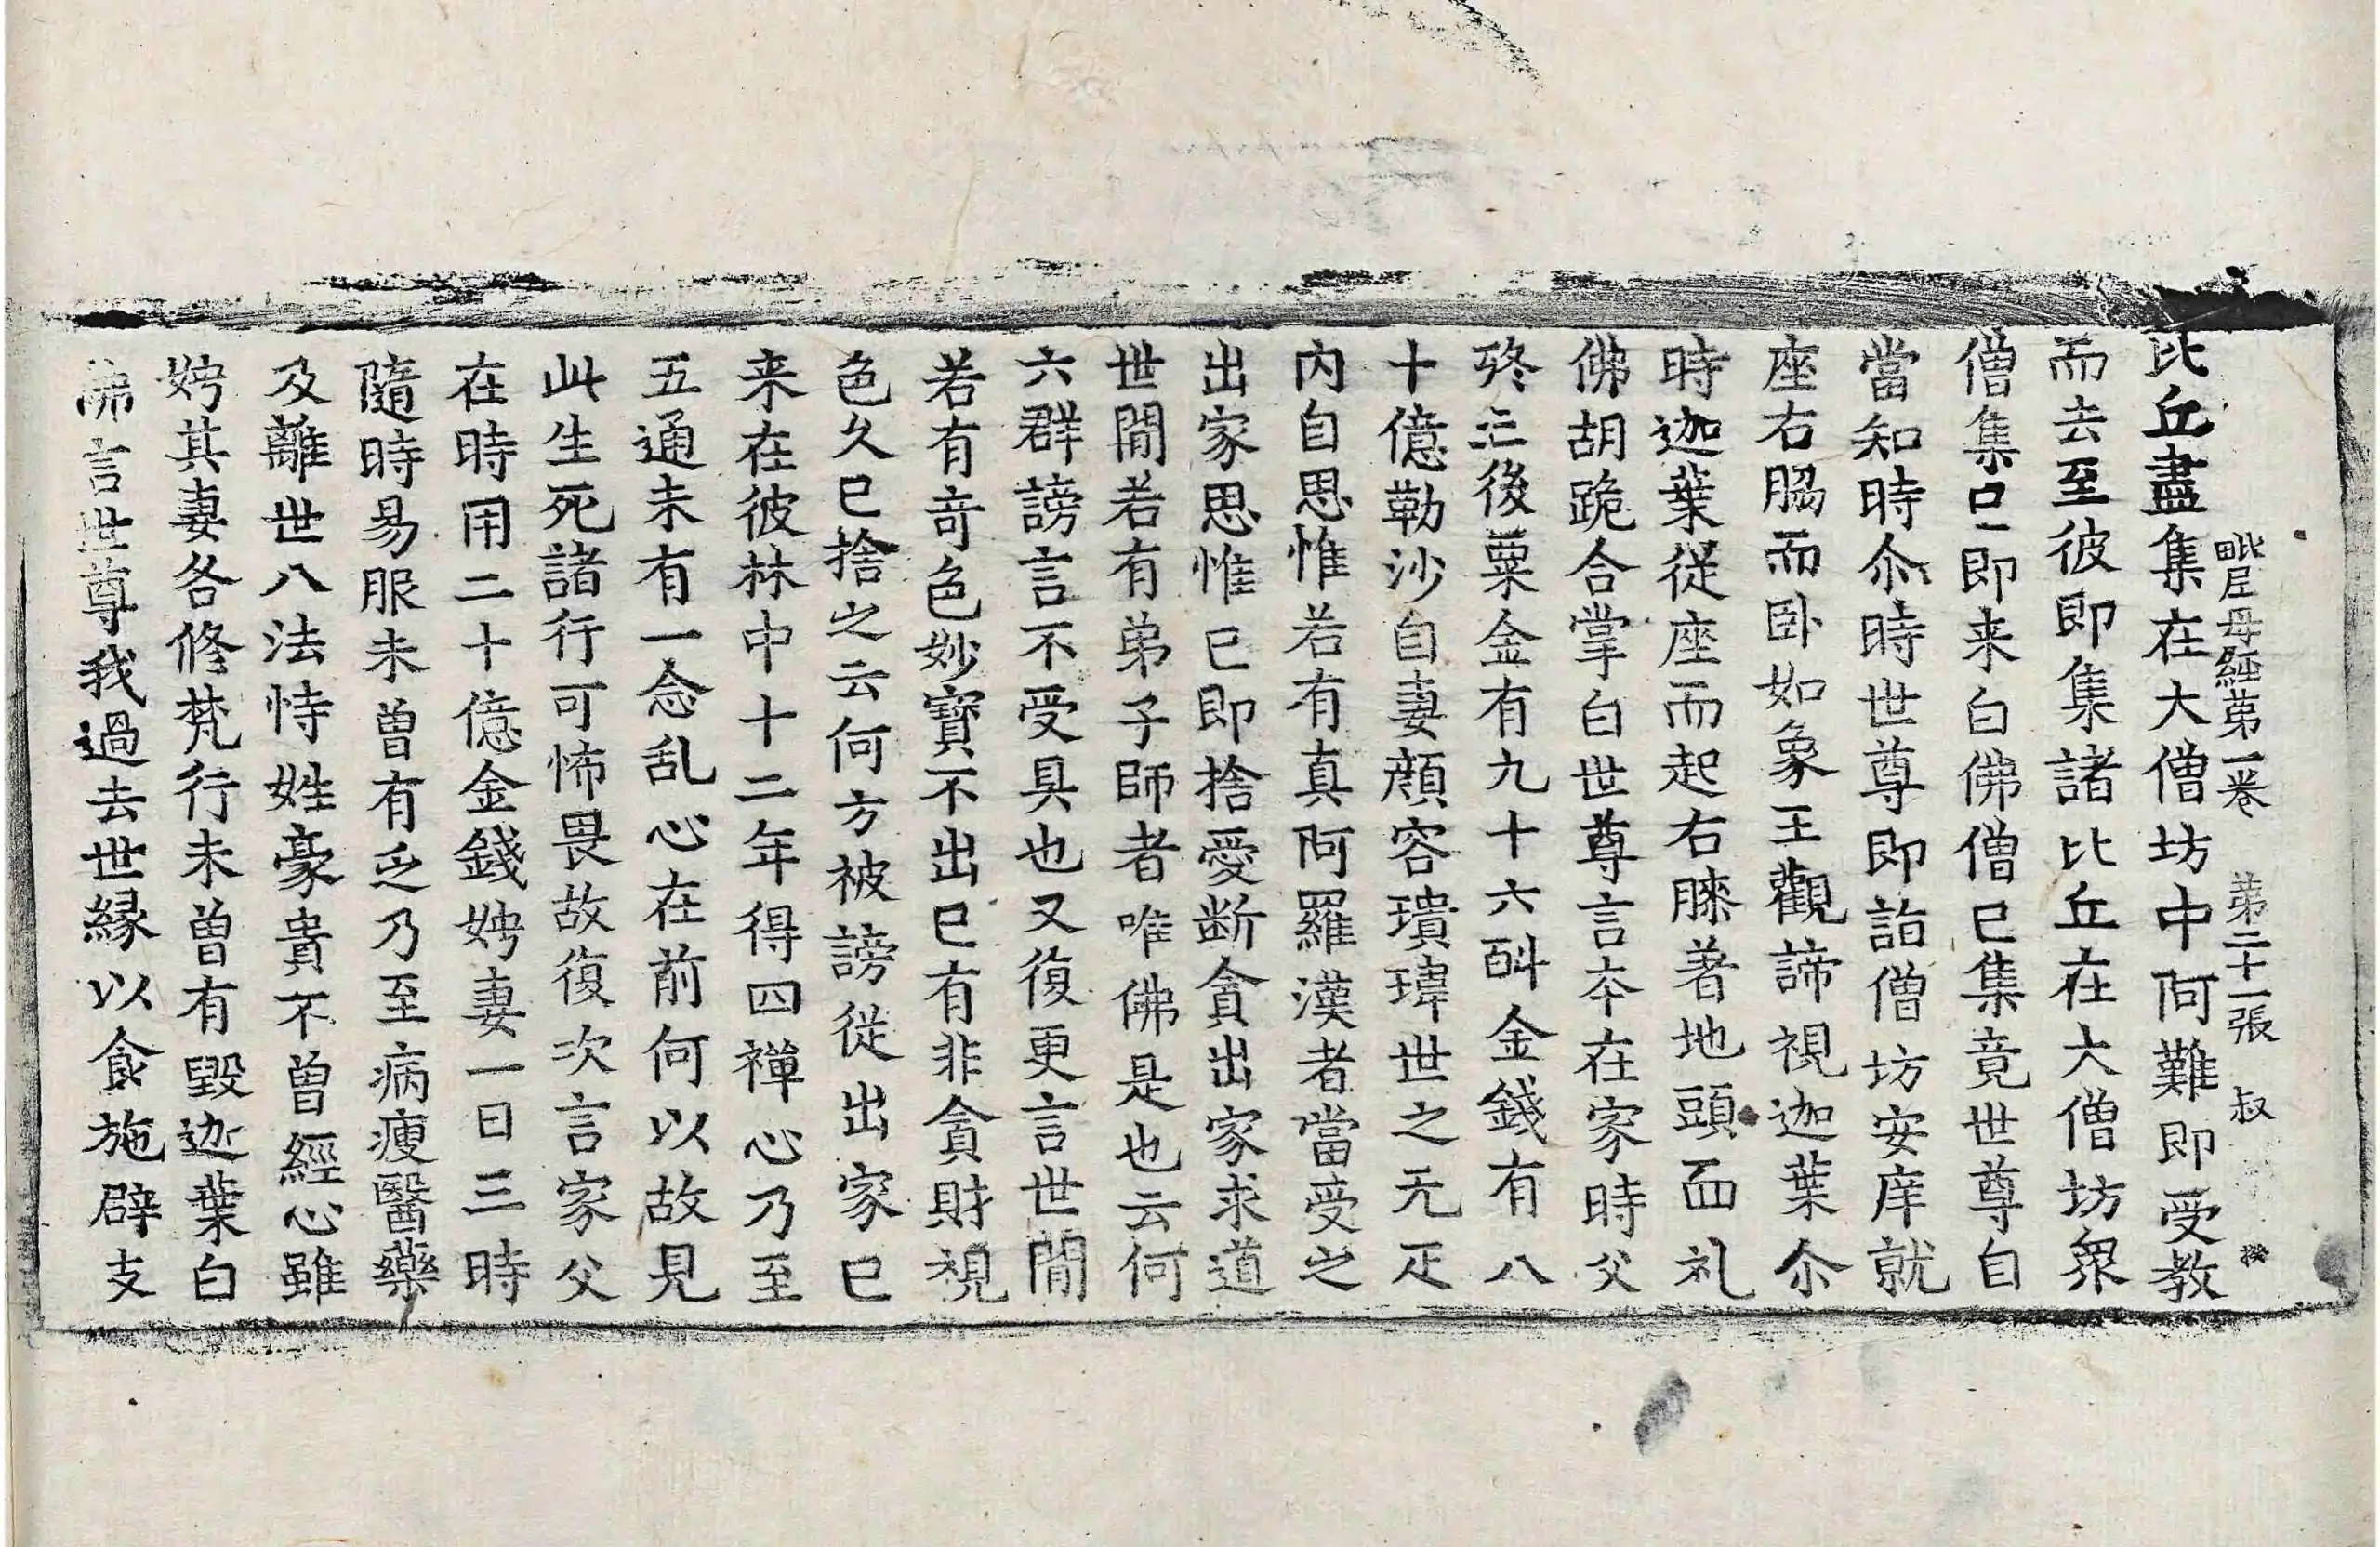 毗尼母經第一卷 第二十一張 叔 㩲
比丘盡集在大僧坊中阿難即受教
而去至彼即集諸比丘在大僧坊衆
僧集已即来白佛僧已集竟世尊自
當知時尒時世尊即詣僧坊安庠就
座右脇而卧如象王觀諦視迦葉尒
時迦葉從座而起右膝著地頭面礼
佛胡跪合掌白世尊言夲在家時父
終亡後粟金有九十六斛金錢有八
十億勒沙自妻顔容瓌瑋世之无疋
内自思惟若有真阿羅漢者當受之
出家思惟已即捨愛断貪出家求道
世閒若有弟子師者唯佛是也云何
六群謗言不受具也又復更言世閒
若有竒色妙寶不出已有非貪財視
色久已捨之云何方被謗從出家已
来在彼林中十二年得四禪心乃至
五通未有一念乱心在前何以故見
此生死諸行可怖畏故復次言家父
在時用二十億金錢娉妻一日三時
隨時易服未曾有乏乃至病瘦醫藥
及離世八法恃姓豪貴不曾經心雖
娉其妻各修梵行未曾有毀迦葉白
佛言世尊我過去世縁以食施辟支